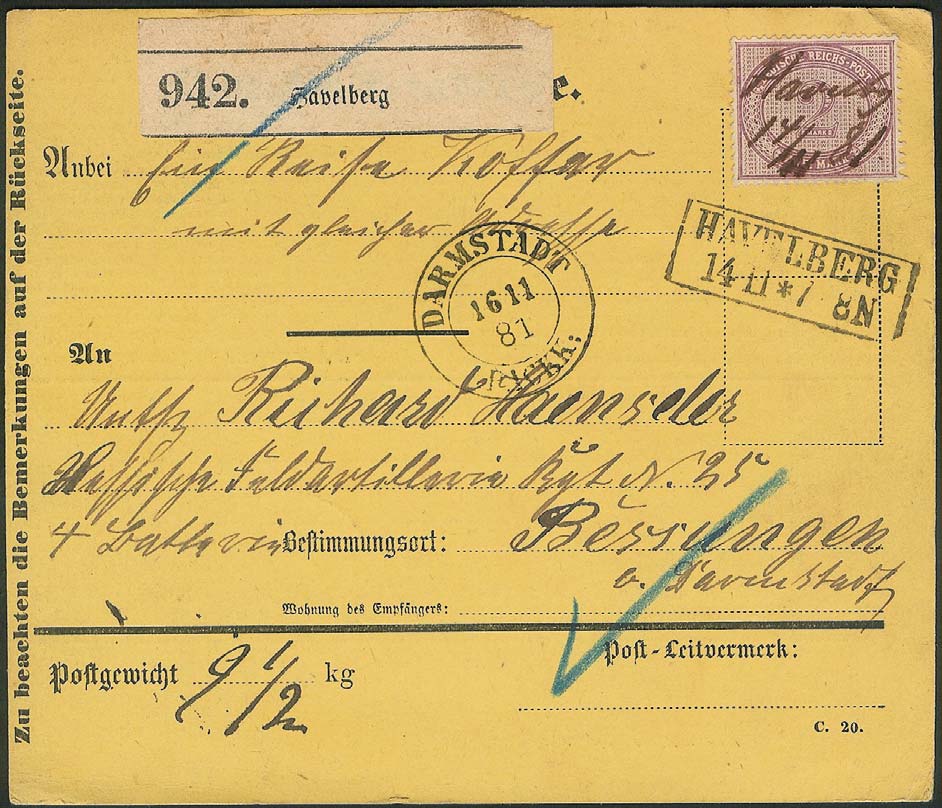 942. Havelberg
e.
DEUTSCHE REICHS-POST
2
MARK
Havelbg
14/11 81
Anbei Ein Reise Koffer
mit gleicher Adresse
HAVELBERG
14 11 * 7 8N
DARMSTADT
16 11
81
An
Richard Haenseler
Hessische Feldartillerie Rgt N. 25
4 Batterie Bestimmungsort: Bessungen
b. Darmstadt
Wohnung des Empfängers:
Postgewicht 9 1/2 kg
Post-Leitvermerk:
C. 20.
Zu beachten die Bemerkungen auf der Rückseite.